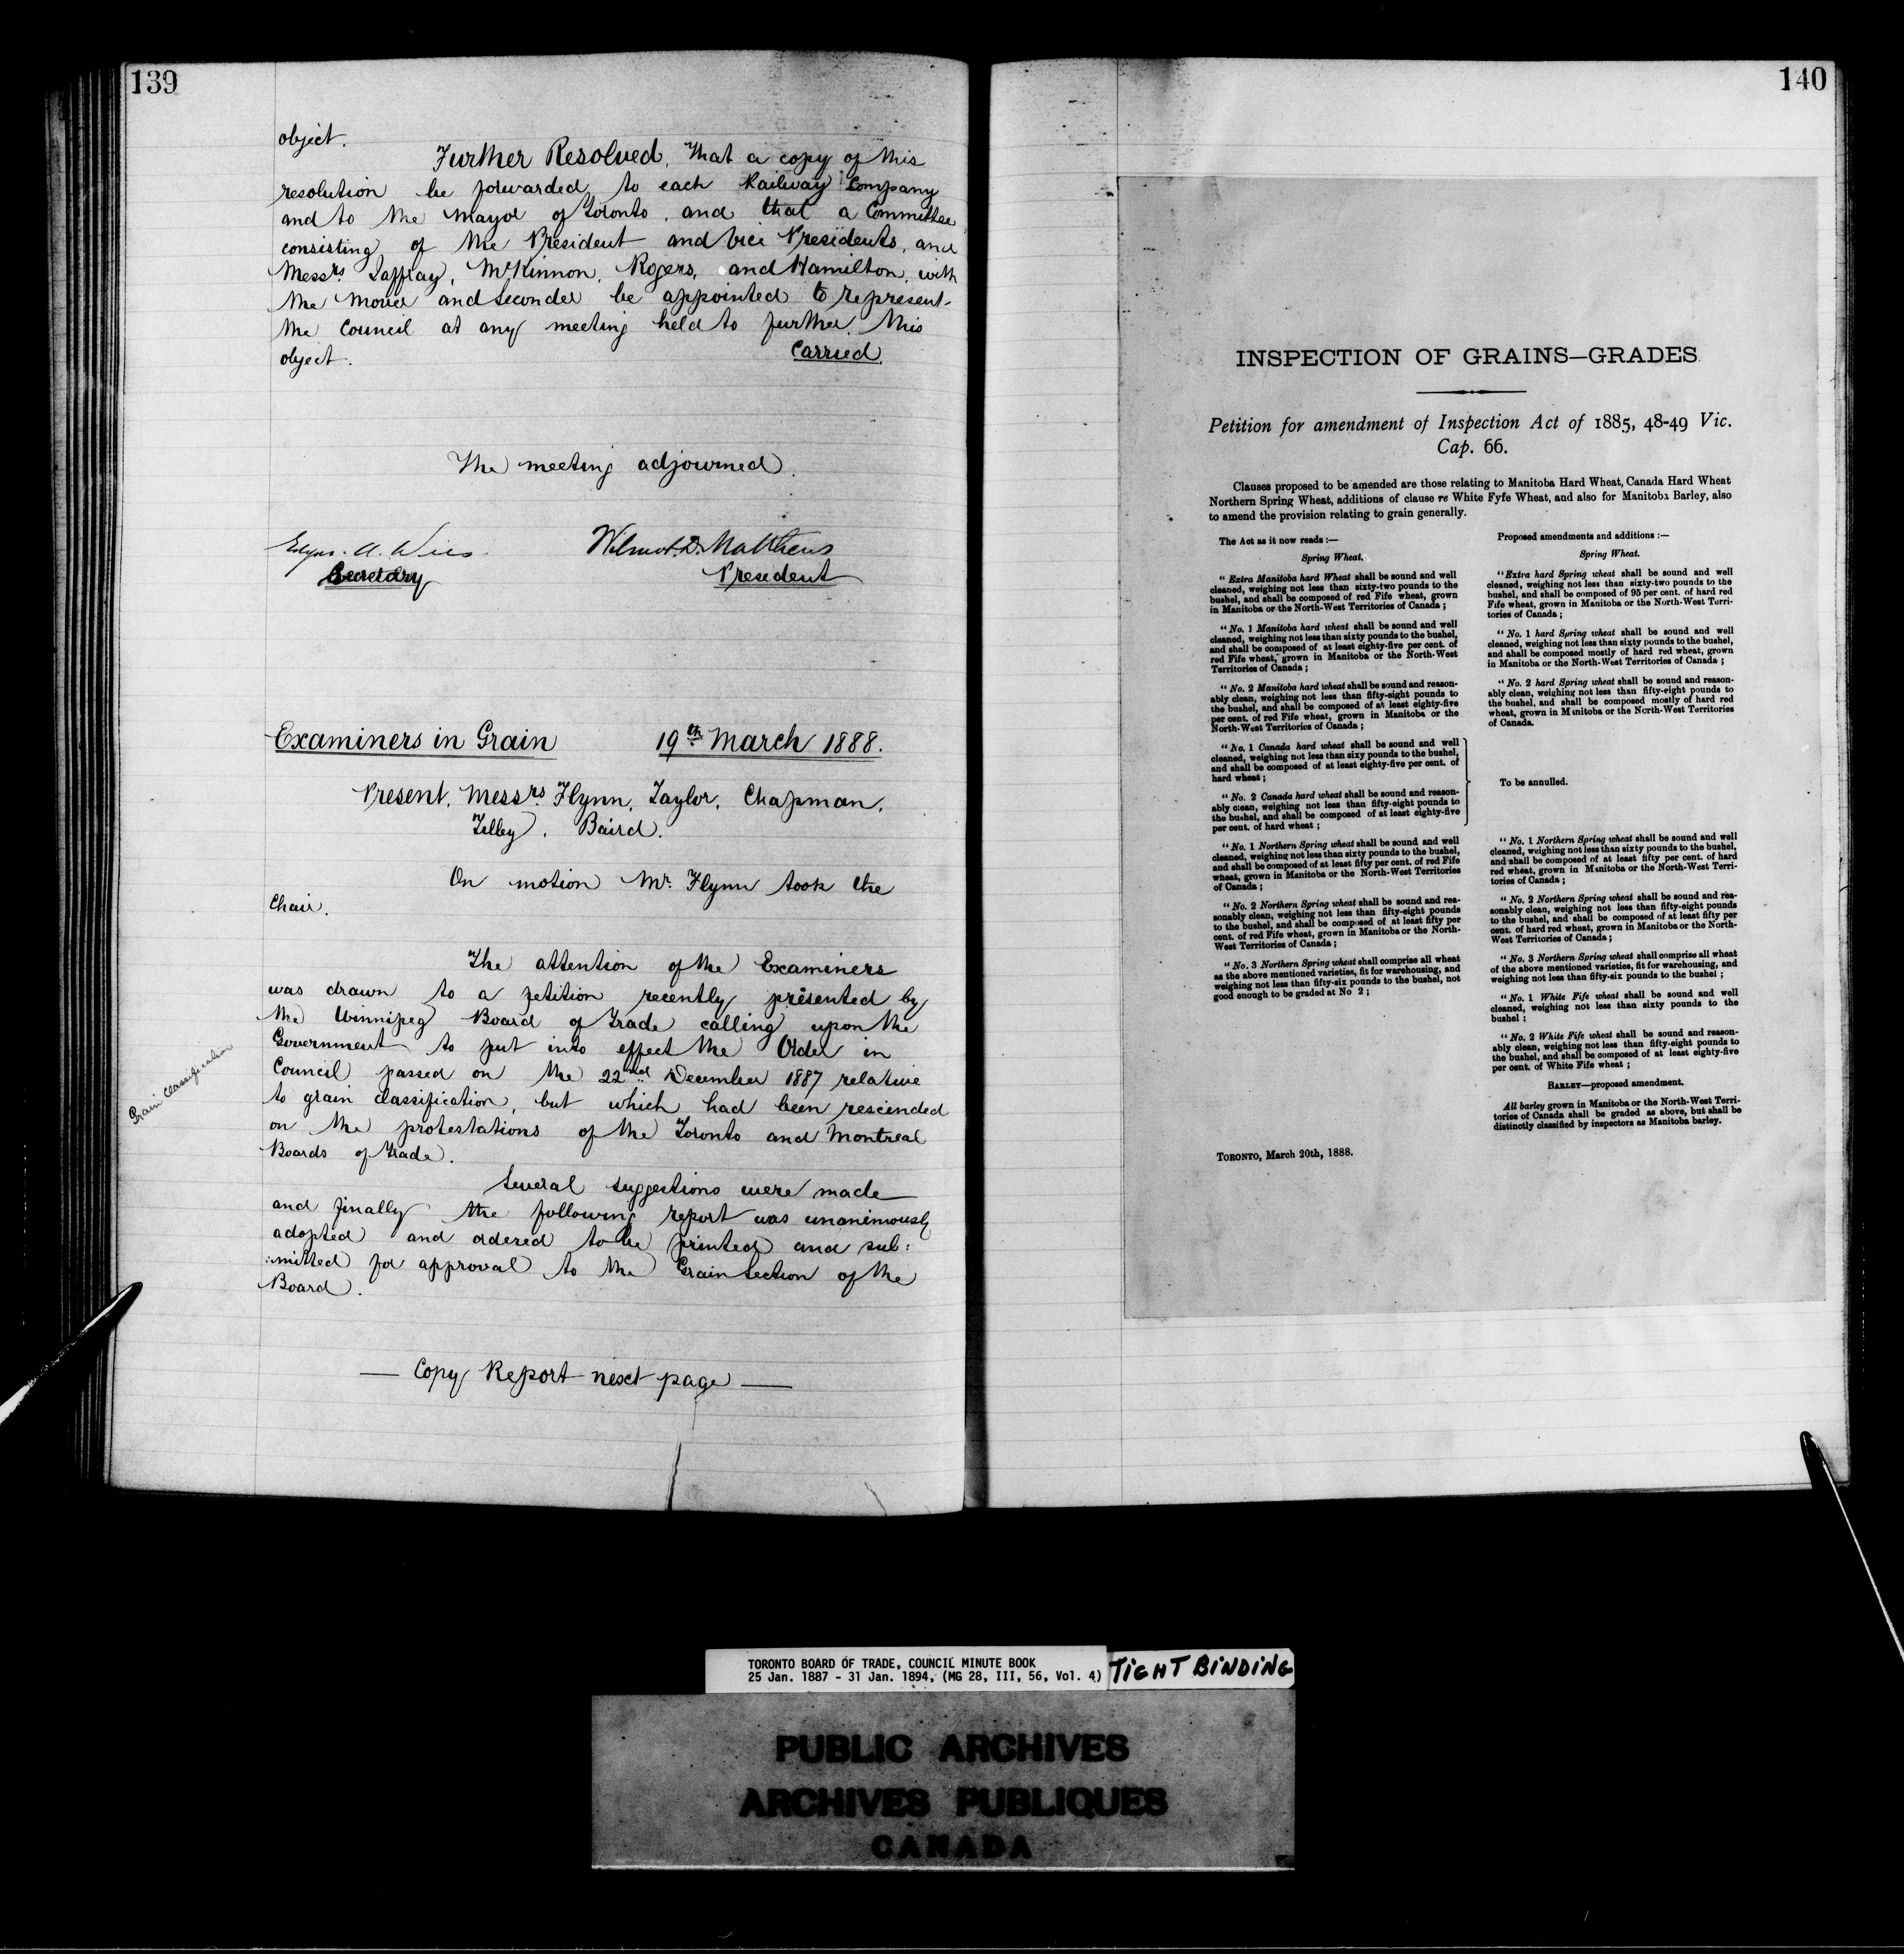 139
object.
Further Resolved, That a copy of this
resolution be forwarded to each Railway Company
and to the Mayor of Toronto, and that a Committee
consisting of the President and Vice Presidents, and
Messrs. Jaffray, McKinnon, Rogers, and Hamilton, with
the mover and seconder be appointed to represent
the Council at any meeting held to further this
object.
Carried.
The meeting adjourned.
Edgar A. Wills
Wilmot D. Matthews
Secretary
President
Examiners in Grain 19th March 1888.
Present, Messrs. Flynn, Taylor, Chapman,
Tilley, Baird.
On motion Mr. Flynn took the
Chair.
The attention of the Examiners
was drawn to a petition recently presented by
the Winnipeg Board of Trade calling upon the
Government to put into effect the Order in
Council passed on the 22nd December 1887 relative
to grain classification, but which had been rescinded
on the protestations of the Toronto and Montreal
Boards of Trade.
Grain classification
Several suggestions were made
and finally the following report was unanimously
adopted and ordered to be printed and sub:
:mitted for approval to the Grain Section of the
Board.
— Copy Report next page —
140
INSPECTION OF GRAINS—GRADES
Petition for amendment of Inspection Act of 1885, 48-49 Vic.
Cap. 66.
Clauses proposed to be amended are those relating to Manitoba Hard Wheat, Canada Hard Wheat
Northern Spring Wheat, additions of clause re White Fyfe Wheat, and also for Manitoba Barley, also
to amend the provision relating to grain generally.
The Act as it now reads :—
Spring Wheat.
" Extra Manitoba hard Wheat shall be sound and well
cleaned, weighing not less than sixty-two pounds to the
bushel, and shall be composed of red Fife wheat, grown
in Manitoba or the North-West Territories of Canada ;
" No. 1 Manitoba hard wheat shall be sound and well
cleaned, weighing not less than sixty pounds to the bushel,
and shall be composed of at least eighty-five per cent. of
red Fife wheat, grown in Manitoba or the North-West
Territories of Canada ;
" No. 2 Manitoba hard wheat shall be sound and reason-
ably clean, weighing not less than fifty-eight pounds to
the bushel, and shall be composed of at least eighty-five
per cent. of red Fife wheat, grown in Manitoba or the
North-West Territories of Canada ;
" No. 1 Canada hard wheat shall be sound and well
cleaned, weighing not less than sixy pounds to the bushel,
and shall be composed of at least eighty-five per cent. of
hard wheat ;
" No. 2 Canada hard wheat shall be sound and reason-
ably clean, weighing not less than fifty-eight pounds to
the bushel, and shall be composed of at least eighty-five
per cent. of hard wheat ;
" No. 1 Northern Spring wheat shall be sound and well
cleaned, weighing not less than sixty pounds to the bushel,
and shall be composed of at least fifty per cent. of red Fife
wheat, grown in Manitoba or the North-West Territories
of Canada ;
" No. 2 Northern Spring wheat shall be sound and rea-
sonably clean, weighing not less than fifty-eight pounds
to the bushel, and shall be composed of at least fifty per
cent. of red Fife wheat, grown in Manitoba or the North-
West Territories of Canada ;
" No. 3 Northern Spring wheat shall comprise all wheat
as the above mentioned varieties, fit for warehousing, and
weighing not less than fifty-six pounds to the bushel, not
good enough to be graded at No 2 ;
TORONTO, March 20th, 1888.
Proposed amendments and additions :—
Spring Wheat.
"Extra hard Spring wheat shall be sound and well
cleaned, weighing not less than sixty-two pounds to the
bushel, and shall be composed of 95 per cent. of hard red
Fife wheat, grown in Manitoba or the North-West Terri-
tories of Canada ;
" No. 1 hard Spring wheat shall be sound and well
cleaned, weighing not less than sixty pounds to the bushel,
and shall be composed mostly of hard red wheat, grown
in Manitoba or the North-West Territories of Canada ;
" No. 2 hard Spring wheat shall be sound and reason-
ably clean, weighing not less than fifty-eight pounds to
the bushel, and shall be composed mostly of hard red
wheat, grown in Manitoba or the North-West Territories
of Canada.
To be annulled.
" No. 1 Northern Spring wheat shall be sound and well
cleaned, weighing not less than sixty pounds to the bushel,
and shall be composed of at least fifty per cent. of hard
red wheat, grown in Manitoba or the North-West Terri-
tories of Canada ;
" No. 2 Northern Spring wheat shall be sound and rea-
sonably clean, weighing not less than fifty-eight pounds
to the bushel, and shall be composed of at least fifty per
cent. of hard red wheat, grown in Manitoba or the North-
West Territories of Canada ;
" No. 3 Northern Spring wheat shall comprise all wheat
of the above mentioned varieties, fit for warehousing, and
weighing not less than fifty-six pounds to the bushel ;
" No. 1 White Fife wheat shall be sound and well
cleaned, weighing not less than sixty pounds to the
bushel ;
" No. 2 White Fife wheat shall be sound and reason-
ably clean, weighing not less than fifty-eight pounds to
the bushel, and shall be composed of at least eighty-five
per cent. of White Fife wheat ;
BARLEY—proposed amendment.
All barley grown in Manitoba or the North-West Terri-
tories of Canada shall be graded as above, but shall be
distinctly classified by inspectors as Manitoba barley.
TORONTO BOARD OF TRADE, COUNCIL MINUTE BOOK
25 Jan. 1887 - 31 Jan. 1894, (MG 28, III, 56, Vol. 4)
TIGHT BINDING
PUBLIC ARCHIVES
ARCHIVES PUBLIQUES
CANADA